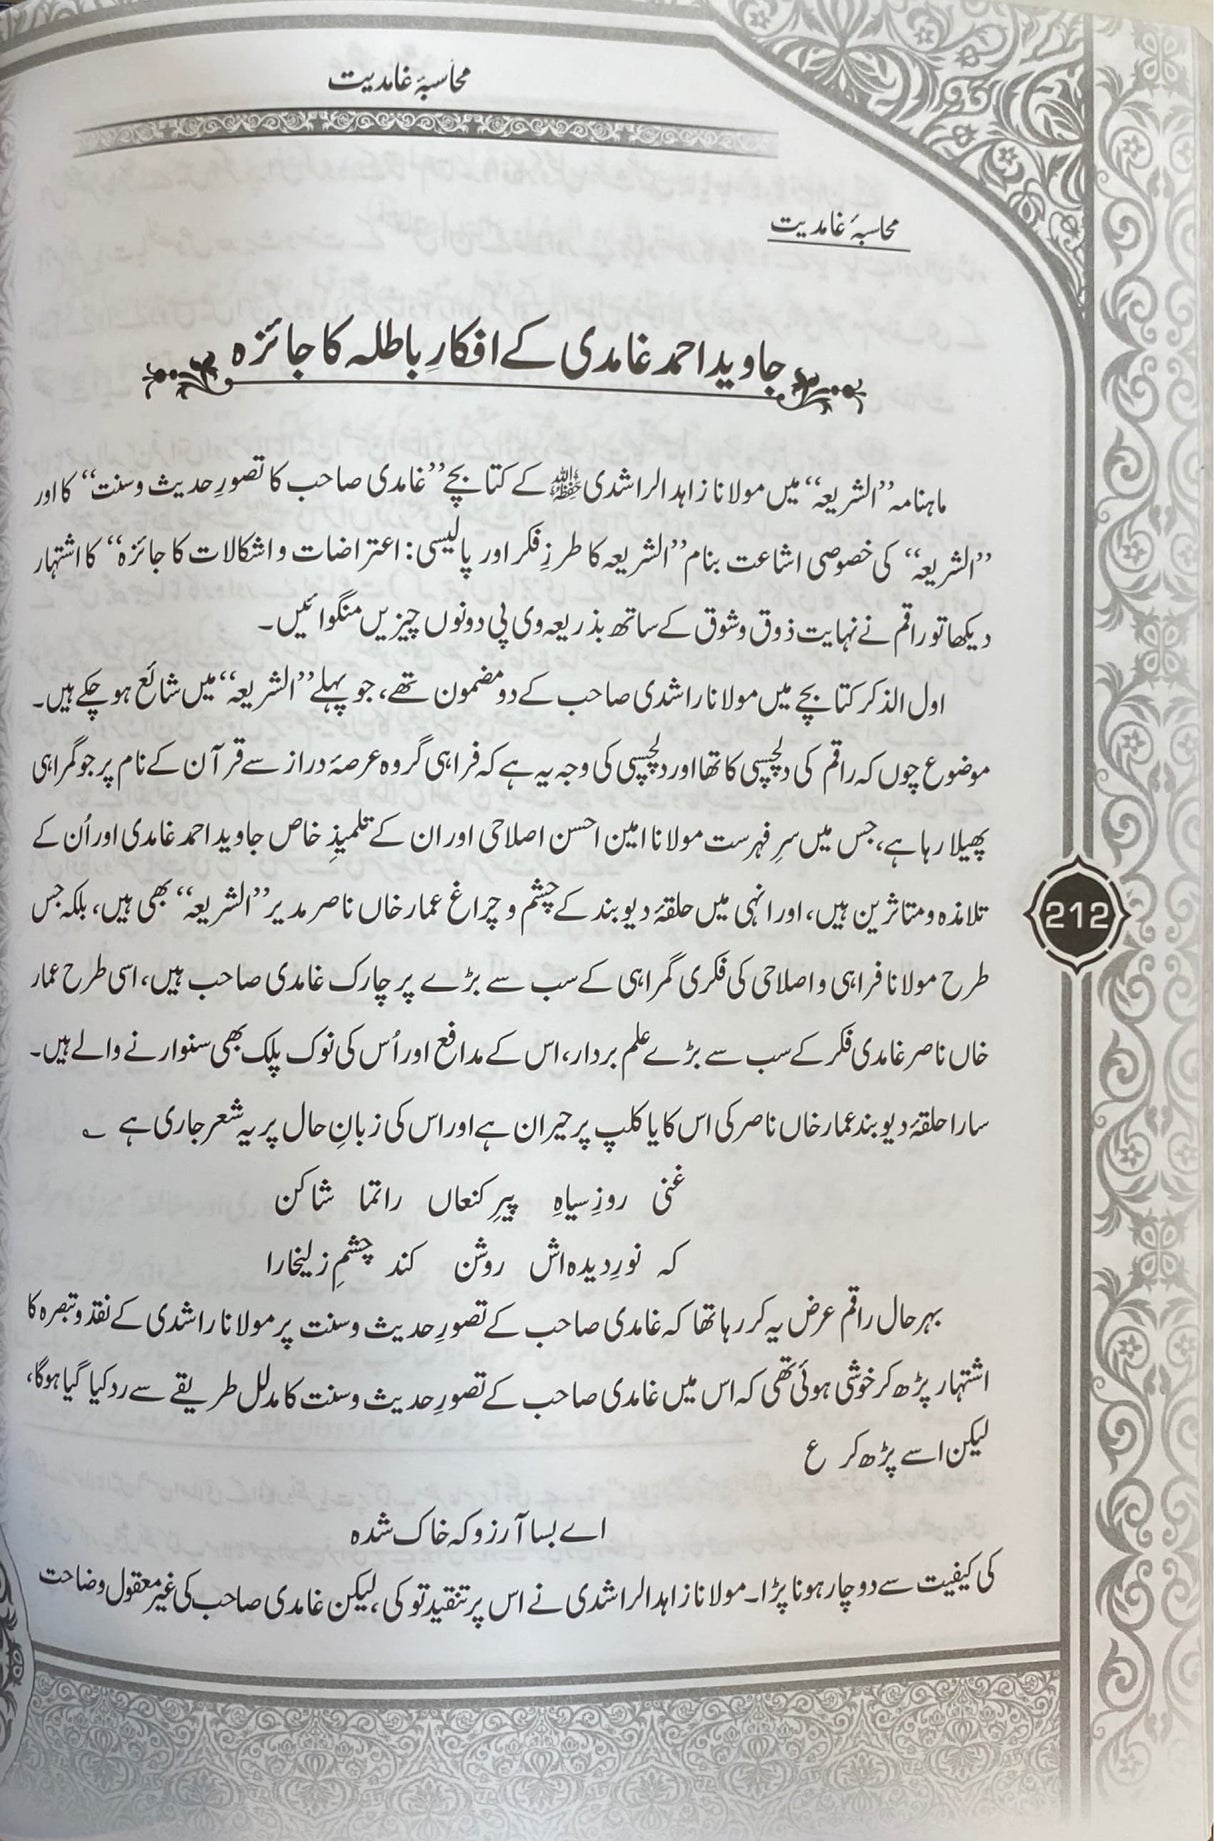 محاسبۂ غامدیت
محاسبۂ غامدیت
جاوید احمد غامدی کے افکارِ باطلہ کا جائزہ
ماہنامہ ’’الشریعہ‘‘ میں مولانا زاہد الراشدی حفظہ اللہ کے کتابچے ’’غامدی صاحب کا تصورِ حدیث و سنت‘‘ کا اور
’’الشریعہ‘‘ کی خصوصی اشاعت بنام ’’الشریعہ کا طرزِ فکر اور پالیسی: اعتراضات و اشکالات کا جائزہ‘‘ کا اشتہار
دیکھا تو راقم نے نہایت ذوق و شوق کے ساتھ بذریعہ وی پی دونوں چیزیں منگوائیں۔
اول الذکر کتابچے میں مولانا راشدی صاحب کے دو مضمون تھے، جو پہلے ’’الشریعہ‘‘ میں شائع ہو چکے ہیں۔
موضوع چوں کہ راقم کی دلچسپی کا تھا اور دلچسپی کی وجہ یہ ہے کہ فراہی گروہ عرصۂ دراز سے قرآن کے نام پر جو گمراہی
پھیلا رہا ہے، جس میں سرِ فہرست مولانا امین احسن اصلاحی اور ان کے تلمیذِ خاص جاوید احمد غامدی اور اُن کے
تلامذہ و متاثرین ہیں، اور انہی میں حلقۂ دیوبند کے چشم و چراغ عمار خاں ناصر مدیر ’’الشریعہ‘‘ بھی ہیں، بلکہ جس
212
طرح مولانا فراہی و اصلاحی کی فکری گمراہی کے سب سے بڑے پرچارک غامدی صاحب ہیں، اسی طرح عمار
خاں ناصر غامدی فکر کے سب سے بڑے علم بردار، اس کے مدافع اور اُس کی نوک پلک بھی سنوارنے والے ہیں۔
سارا حلقۂ دیوبند عمار خاں ناصر کی اس کایا کلپ پر حیران ہے اور اس کی زبانِ حال پر یہ شعر جاری ہے ؎
غنی روزِ سیاہِ پیرِ کنعاں راتما شاکن
کہ نورِ دیدہ اش روشن کند چشمِ زلیخارا
بہرحال راقم عرض یہ کر رہا تھا کہ غامدی صاحب کے تصورِ حدیث و سنت پر مولانا راشدی کے نقد و تبصرہ کا
اشتہار پڑھ کر خوشی ہوئی تھی کہ اس میں غامدی صاحب کے تصورِ حدیث و سنت کا مدلل طریقے سے رد کیا گیا ہوگا،
لیکن اسے پڑھ کر ع
اے بسا آرزو کہ خاک شدہ
کی کیفیت سے دوچار ہونا پڑا۔ مولانا زاہد الراشدی نے اس پر تنقید تو کی، لیکن غامدی صاحب کی غیر معقول وضاحت